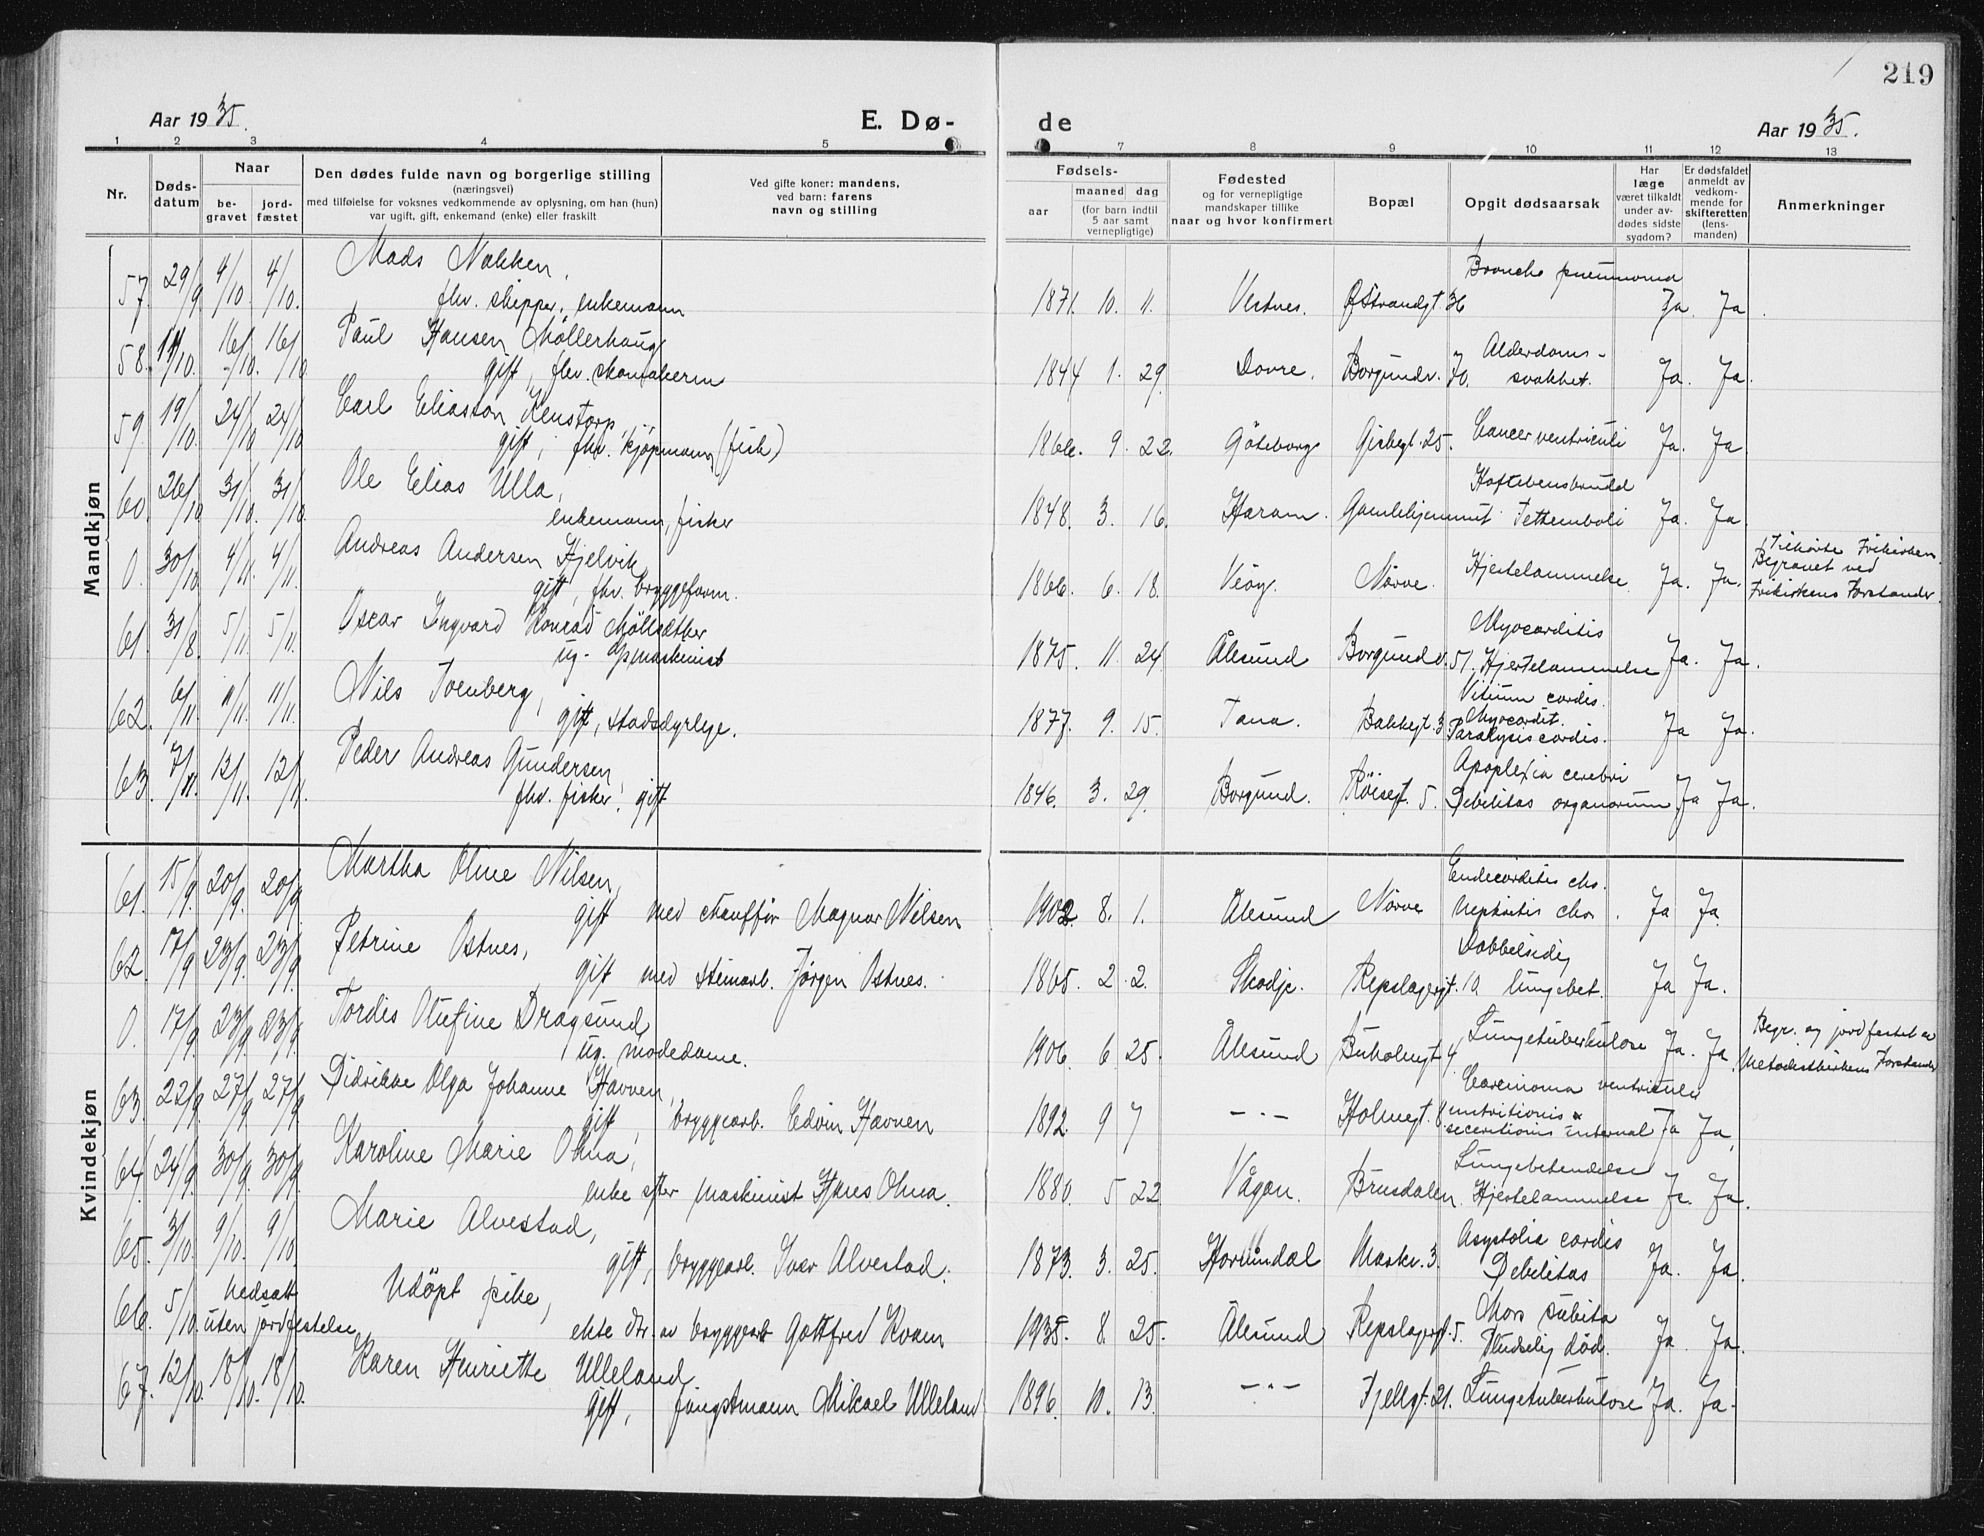 219
Aar 1935.
E. Dø-
de
Aar 1935.
1 2 3 4 5 7 8 9 10 11 12 13
Nr.
Døds-
datum
Naar
be-
gravet
jord-
fæstet
Den dødes fulde navn og borgerlige stilling
(næringsvei)
med tilføielse for voksnes vedkommende av oplysning, om han (hun)
var ugift, gift, enkemand (enke) eller fraskilt
Ved gifte koner: mandens,
ved barn: farens
navn og stilling
Fødsels-
aar
maaned dag
(for barn indtil
5 aar samt
vernepligtige)
Fødested
og for vernepligtige
mandskaper tillike
naar og hvor konfirmert
Bopæl
Opgit dødsaarsak
Har
læge
været tilkaldt
under av-
dødes sidste
sygdom?
Er dødsfaldet
anmeldt av
vedkom-
mende for
skifteretten
(lens-
manden)
Anmerkninger
Mandkjøn
57. 29/9 4/10 4/10. Mads Nakken,
fhv. skipper, enkemann 1871. 10. 11. Vestnes. Ø Strandgt. 36 Broncho pneumonia Ja. Ja.
58. 11/10. 16/10. 16/10 Paul Hansen Møllerhaug
gift, fhv. skomakerm 1844 1. 29. Dovre. Borgundv. 70. Alderdoms-
svakhet. Ja. Ja.
59. 19/10. 24/10 24/10 Carl Eliasson Kenstorp,
gift, fhv. kjøpmann (fisk) 1866. 9. 22. Göteborg Gisbegt. 25. Cancer ventriculi Ja. Ja
60. 26/10 31/10. 31/10. Ole Elias Ulla,
enkemann, fisker 1848. 3. 16. Haram. Gamlehjemmet Hoftebensbrudd
Fettemboli Ja. Ja.
0. 30/10. 4/11. 4/11. Andreas Andersen Hjelvik
gift, fhv. bryggeform. 1866. 6. 18. Veöy. Nørve. Hjertelammelse. Ja. Ja. Tilhørte Frikirken
Begravet ved
Frikirkens Forstander.
61. 31/8. 5/11. 5/11. Oscar Ingvard Konrad Møllsæther
ug. maskinist 1875. 11. 24. Ålesund Borgundv. 51. Myocarditis
Hjertelammelse Ja. Ja.
62. 6/11. 11/11. 11/11. Nils Toenberg,
gift, stadsdyrlege. 1877. 9. 15. Tana. Bakkegt. 3 Vitium cordis.
Myocardit.
Paralysis cordis. Ja Ja.
63. 7/11. 12/11. 12/11. Peder Andreas Gundersen
fhv. fisker, gift 1846. 3. 29. Borgund. Röisegt. 5. Apoplexia cerebri
Debilitas organorum Ja Ja.
Kvindekjøn
61. 15/9. 20/9. 20/9 Martha Oline Nilsen,
gift med chauffør Magnar Nilsen 1902. 8. 1. Ålesund Nørve Endocarditis chr.
Nephritis chr. Ja Ja.
62. 17/9 23/9. 23/9. Petrine Ostnes,
gift med steinarb. Jørgen Ostnes. 1865. 2. 2. Skodje. Repslagergt. 10 Dobbelsidig
lungebet. Ja Ja.
0. 17/9. 23/9. 23/9. Tordis Olufine Dragsund,
ug. modedame. 1906. 6 25. Ålesund Buholmgt 4 Lungetuberkulose Ja. Ja. Begr. og jordfestet av
Metodistkirkens Forstander
63. 22/9. 27/9 27/9 Didrikke Olga Johanne Havnen,
gift, bryggearb. Edvin Havnen 1892. 9 7 — " — Holmegt. 8. Carcinoma ventriculi
nutritionis &
internal Ja Ja.
64. 24/9. 30/9. 30/9. Karoline Marie Ohna,
enke efter maskinist Hans Ohna. 1880. 5 22 Vågan. Brusdalen. Lungebetendelse
Hjertelammelse Ja. Ja.
65. 3/10. 9/10. 9/10. Marie Alvestad,
gift, bryggearb. Ivar Alvestad. 1873. 3. 25. Horundal Maskv. 3. Asystolia cordis
Debilitas Ja. Ja.
66. 5/10. Nedsatt
uten jordfestelse Udöpt pike,
ekte dtr. av bryggearb Gottfred Kvam 1935. 8. 25. Ålesund Repslagergt. 5. Mors subita
Pludselig död. Ja. Ja.
67. 12/10. 18/10. 18/10. Karen Henriette Ulleland
gift, fangstmann Mikael Ulleland 1896. 10. 13. — " — Fjellgt. 21. Lungetuberkulose Ja. Ja.